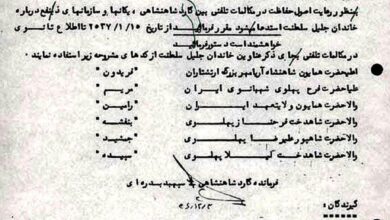 بمنظور رعایت اصول حفاظت در مکالمات تلفنی بین گارد شاهنشاهی، یگانها و سازمانهای ذینفع درباره
خاندان جلیل سلطنت استدعا میشود مقرر فرمائید از تاریخ ۲۵۳۷/۱/۱۵ تا اطلاع ثانوی
خواهشمند است دستور فرمائید
در مکالمات تلفنی بجای ذکر عناوین خاندان جلیل سلطنت از کدهای مشروحه زیر استفاده نمایند:
اعلیحضرت همایون شاهنشاه آریامهر بزرگ ارتشتاران فریدون
علیاحضرت فرح پهلوی شهبانوی ایران مریم
والاحضرت همایون ولایتعهد ایران رامین
والاحضرت شاهدخت فرحناز پهلوی بنفشه
والاحضرت شاهپور علیرضا پهلوی جمشید
والاحضرت شاهدخت لیلا پهلوی سپیده
فرمانده گارد شاهنشاهی سپهبد بدره ای
۳۶/۱۲/۳
گیرندگان: